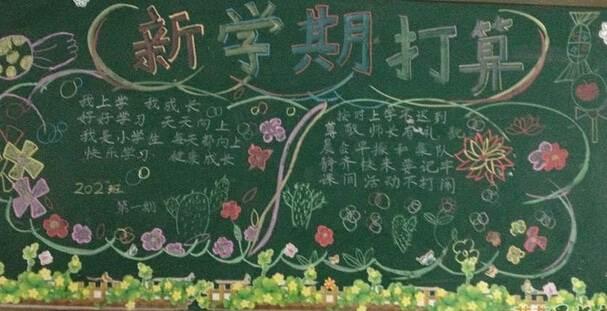 新学期打算
我上学 我成长
好好学习 天天向上
我是小学生 每天都向上
快乐学习 健康成长
202班
第一期
按时上学不迟到
尊敬师长有礼貌
晨会早操和集队
静齐快来要记牢
课间活动不打闹